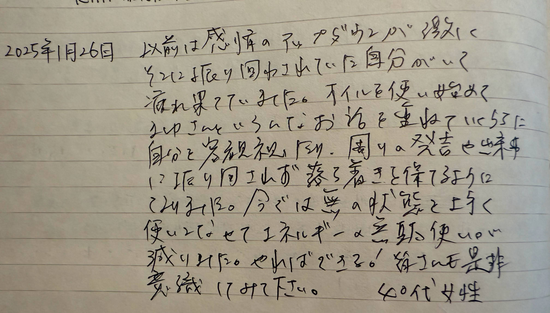 2025年1月26日 以前は感情のアップダウンが激しく
それに振り回されていた自分がいて
疲れ果てていました。オイルを使い始めて
さんといろんなお話を重ねていくうちに
自分を客観視したり、周りの発言や出来事
に振り回されず落ち着きを保てるように
なりました。今では無の状態を上手く
使いこなせてエネルギーの無駄使いが
減りました。やればできる！皆さんも是非
意識してみて下さい。 40代女性